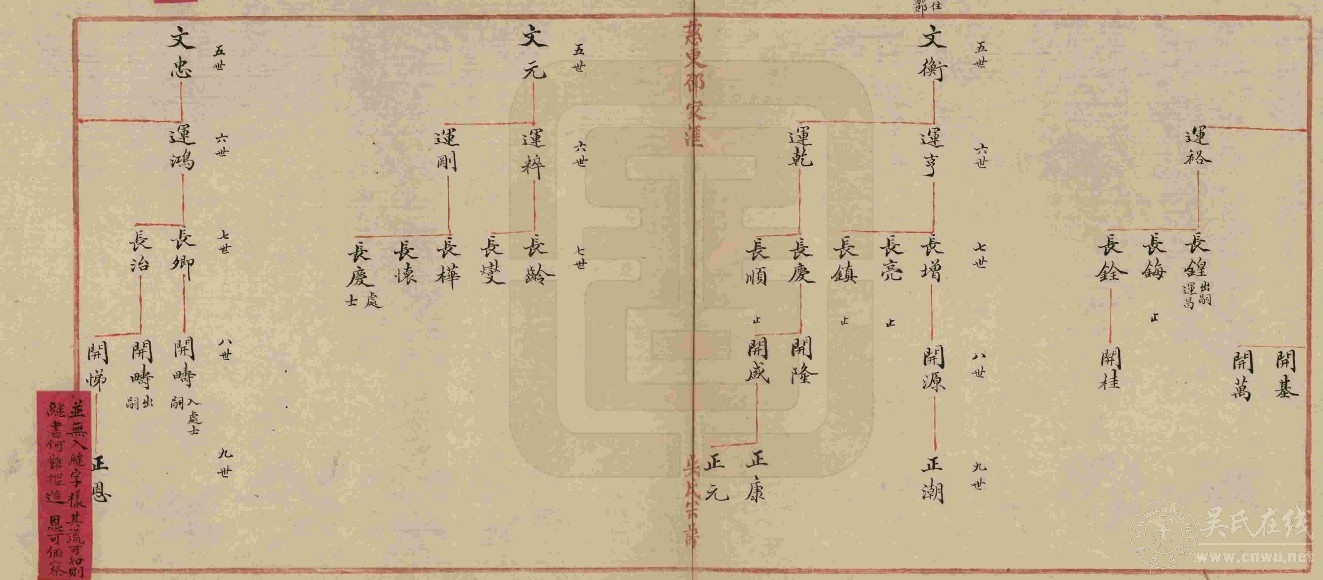 五世
六世
七世
八世
九世
運裕
長鍠 出嗣運昌
長鋂 止
長銓
開基
開萬
開桂
文衡
運亨
運乾
長增
長亮 止
長鎮 止
長慶
長順 止
開源
開隆
開盛
正潮
正康
正元
吳氏宗譜
五世
六世
七世
文元
運粹
運剛
長齡
長燮
長樺
長懷
長慶 處士
五世
六世
七世
八世
九世
文忠
運鴻
長卿
長治
開疇 入嗣 處士
開疇 出嗣
開悌
正恩
並無入繼字樣其流可知則
吴氏在线
www.cnwu.net